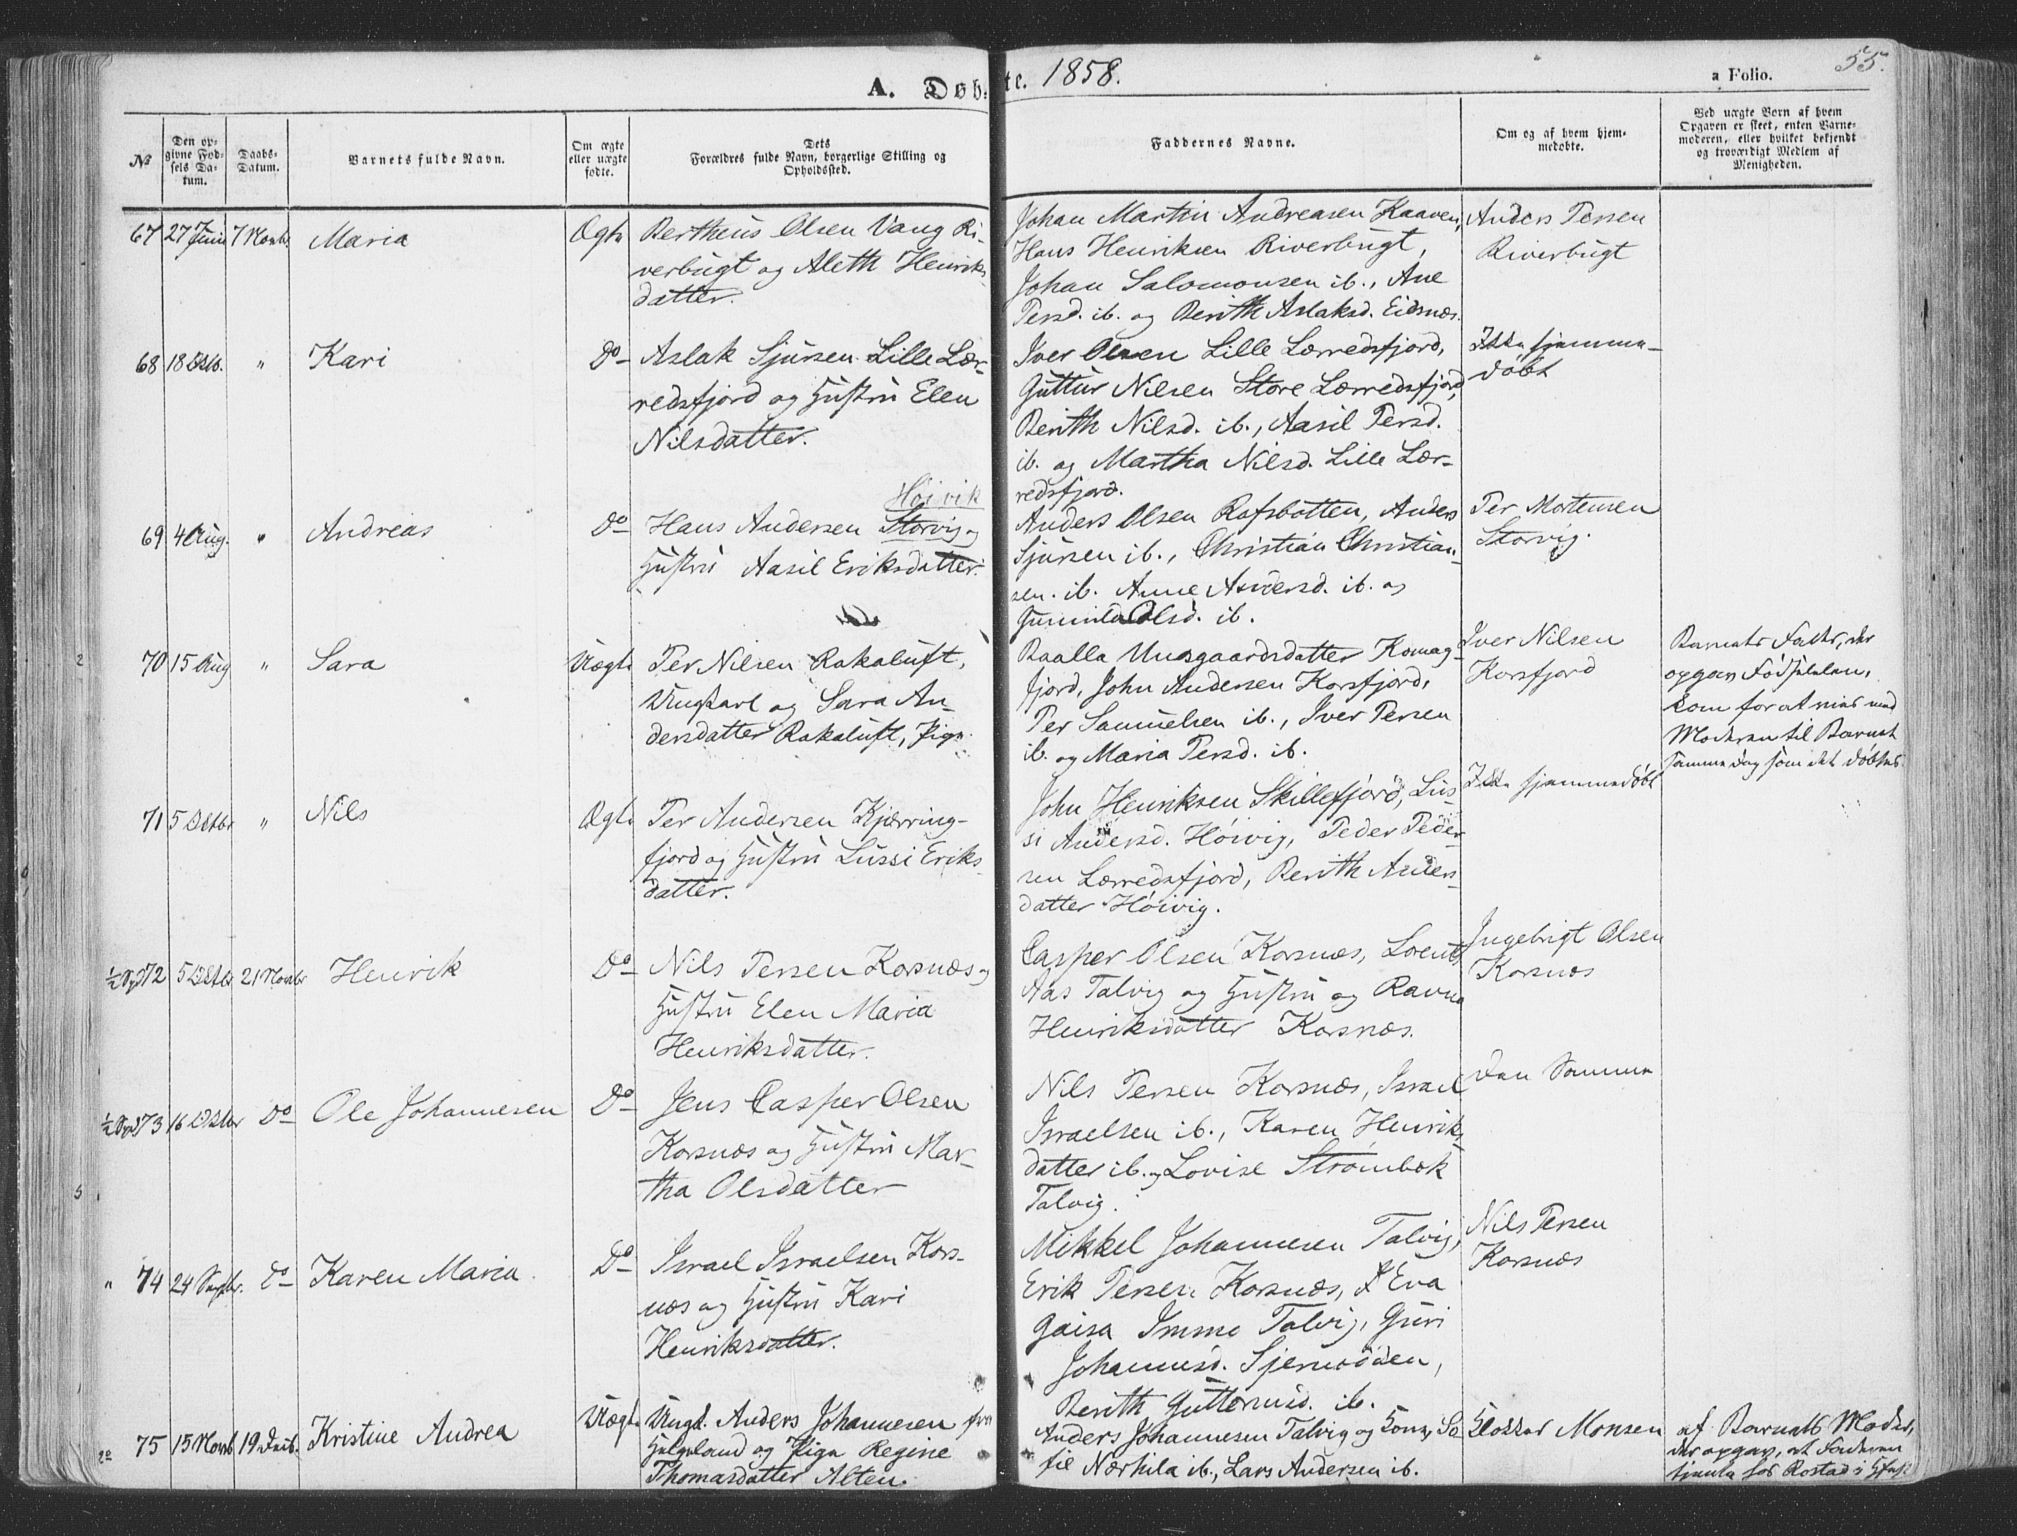 A. Døb-
te. 1858.
a Folio.
55.
No
Den op-
givne Fød-
sels Da-
tum.
Daabs-
Datum.
Barnets fulde Navn.
Om ægte
eller uægte
fødte.
Dets
Forældres fulde Navn, borgerlige Stilling og
Opholdssted.
Faddernes Navne.
Om og af hvem hjem-
medøbte.
Ved uægte Børn af hvem
Opgaven er skeet, enten Barne-
moderen, eller hvilket bekjendt
og troværdigt Medlem af
Menigheden.
67 27 Juni 7 Novbr. Maria Ægte
Bertheus Olsen Vang Ri-
verbugt og Aleth Henriks
datter.
Johan Martin Andreasen Kaaven,
Hans Henriksen Riverbugt,
Johan Salomonsen ib., Ane
Persd. ib. og Berith Aslaksd. Eidsnæs.
Anders Persen
Riverbugt
68 18 Oktb. " Kari Do
Aslak Sjursen Lille Lær-
redsfjord og Hustru Elen
Nilsdatter.
Iver Olsen Lille Lærredsfjord,
Guttur Nilsen Store Lærredsfjord,
Berith Nilsd. ib., Aasil Persd.
ib. og Martha Nilsd. Lille Lær-
redsfjord.
Ikke hjemme-
døbt
69 4 Aug. " Andreas Do
Høivik
Hans Andersen Storvig og
Hustru Aasil Eriksdatter.
Anders Olsen Rafsbotten, Anders
Sjursen ib., Christian Christian-
sen ib. Anne Andersd. ib. og
Gunnila Olsd. ib.
Per Mortensen
Storvig.
70 15 Aug " Sara Uægte
Per Nilsen Rakaluft,
Ungkarl og Sara An-
dersdatter Rakaluft, Pige.
Baalla Unsgaardsdatter Komag-
fjord, John Andersen Korsfjord,
Per Samuelsen ib., Iver Persen
ib. og Maria Persd. ib.
Iver Nilsen
Korsfjord
Barnets Fader, der
opgav Fødselen,
kom for at mød med
Moderen til Barnet
samme Dag som det døbtes.
71 5 Oktbr " Nils Ægte
Per Andersen Kjærring-
fjord og Hustru Lussi Eriks
datter.
John Henriksen Skillefjord, Lus-
si Andersd. Høivig, Peder Peder-
sen Lærredsfjord, Berith Anders-
datter Høivig.
Ikke hjemmedøbt
72 5 Oktbr 21 Novbr Henrik Do
Nils Persen Korsnæs og
Hustru Elen Maria
Henriksdatter.
Casper Olsen Korsnæs, Lorents
Aas Talvig og Hustru og Ravna
Henriksdatter Korsnæs.
Ingebrigt Olsen
Korsnæs
73 16 Oktbr Do Ole Johannesen Do
Jens Casper Olsen
Korsnæs og Hustru Mar-
tha Olsdatter
Nils Persen Korsnæs, Israel
Israelsen ib., Karen Henriks
datter ib. og Lovise Strømbæk
Talvig.
Den Samme
" 74 24 Septbr. Do Karen Maria Do
Israel Israelsen Kors-
næs og Hustru Kari
Henriksdatter.
Mikkel Johannesen Talvig,
Erik Persen Korsnæs, Eva
Gaisa Immo Talvig, Guri
Johannesd. Sjernødden,
Berith Guttormsd. ib.
Nils Persen
Korsnæs
75 15 Novb 19 Decb. Kristine Andrea Uægte
Ungk. Anders Johannesen fra
Helgeland og Pige Regine
Thomasdatter Alten.
Anders Johannesen Talvig og Kone, So-
fie Nærhila ib., Lars Andersen ib.
Klokker Monsen
af Barnets Moder,
der opgav, at Faderen
tjente hos Rostad i